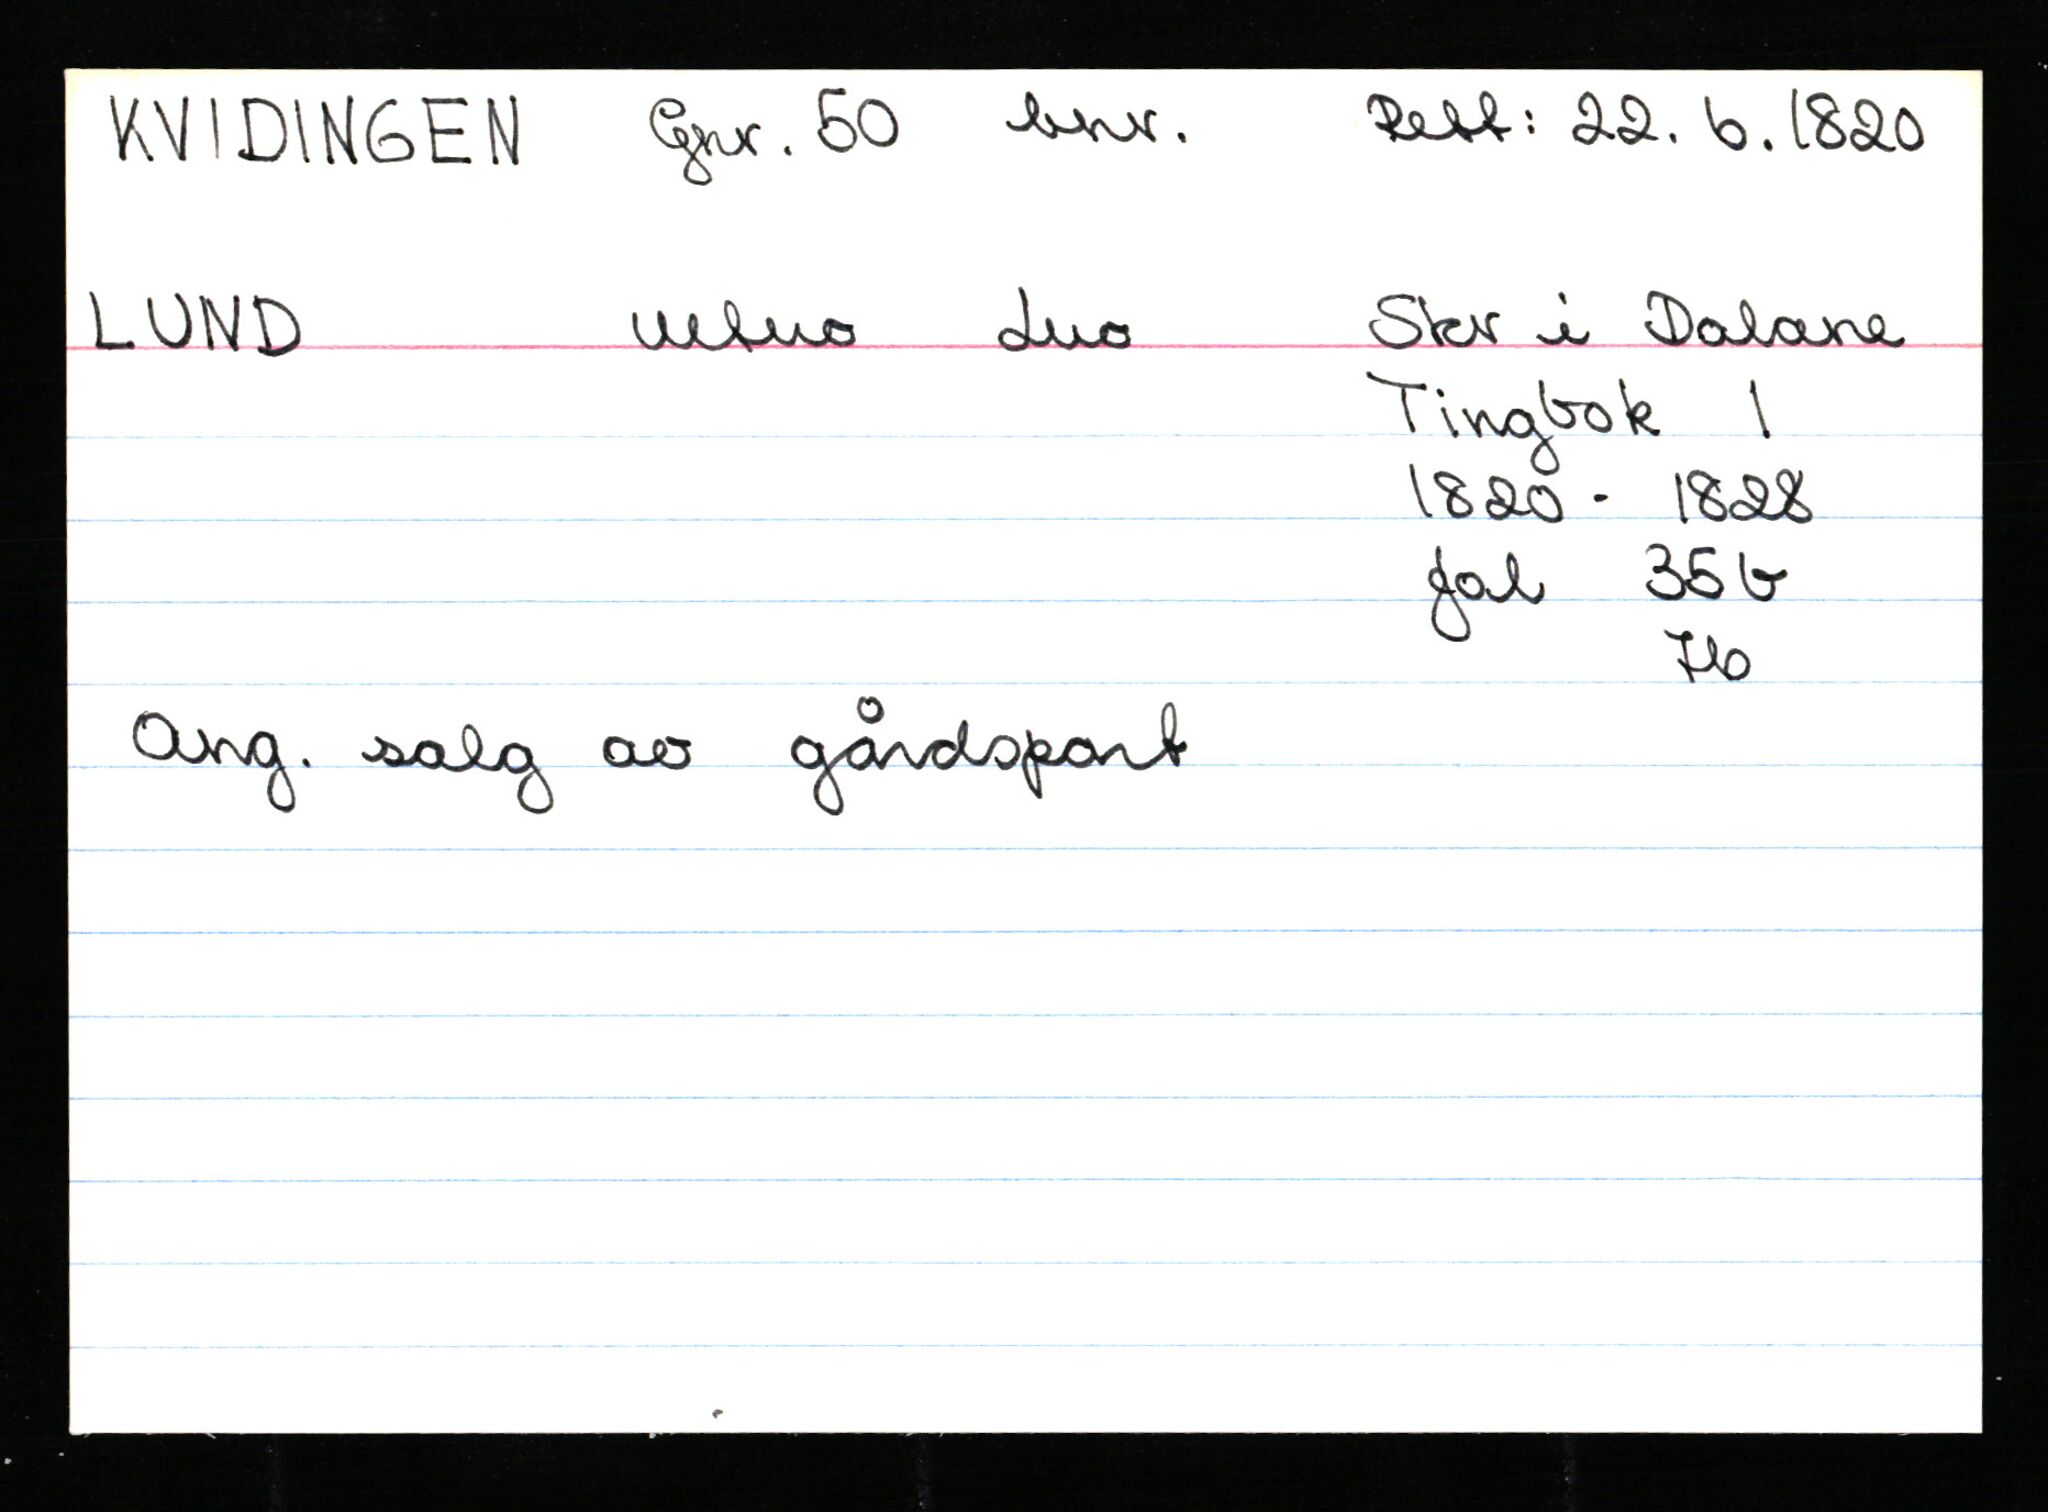 KVIDINGEN Gnr. 50 bnr. Rett: 22. 6. 1820
LUND Skr i Dalane
Tingbok 1
1820 - 1828
fol 35b
Ang. salg av gårdspart